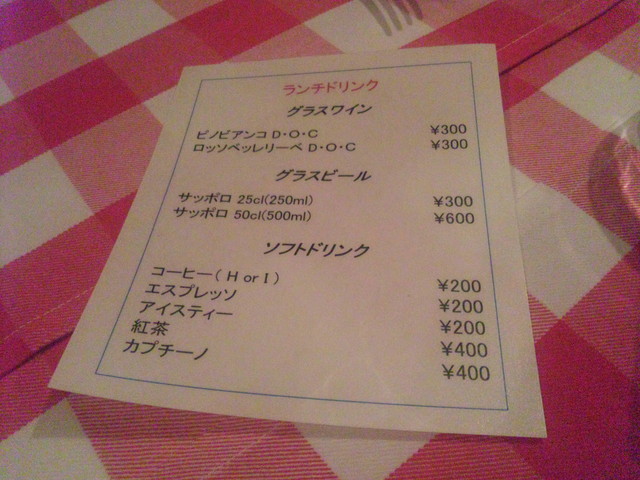 ランチドリンク
グラスワイン
ピノビアンコ D・O・C ¥300
ロッソベッレリーベ D・O・C ¥300
グラスビール
サッポロ 25cl(250ml) ¥300
サッポロ 50cl(500ml) ¥600
ソフトドリンク
コーヒー( H or I ) ¥200
エスプレッソ ¥200
アイスティー ¥200
紅茶 ¥400
カプチーノ ¥400